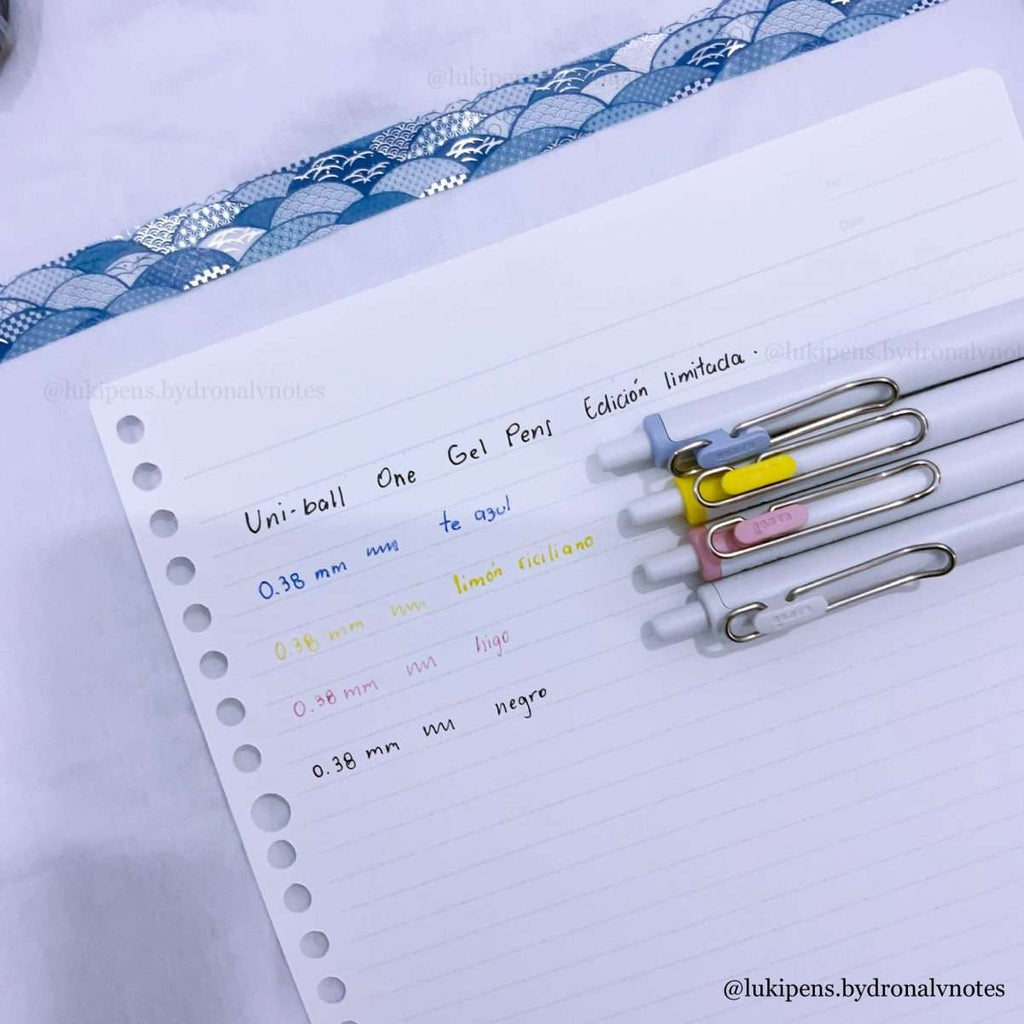 @lukipens.bydronalvnotes
@lukipens.bydronalvnotes
Date
Uni-ball One Gel Pens Edición limitada.
0.38 mm te azul
0.38 mm limón siciliano
0.38 mm higo
0.38 mm negro
@lukipens.bydronalvnotes